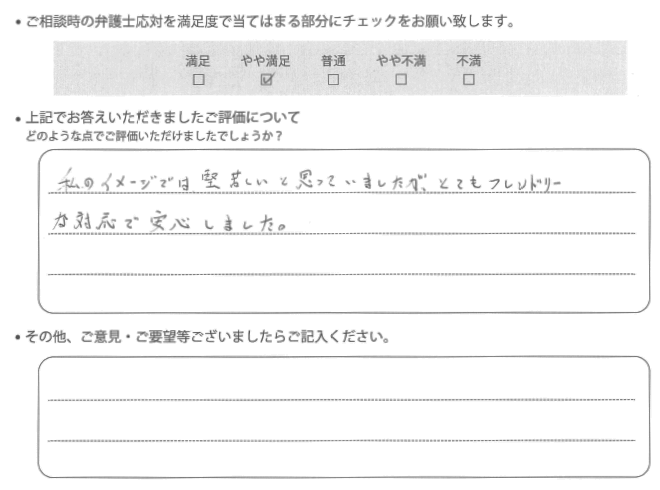 • ご相談時の弁護士応対を満足度で当てはまる部分にチェックをお願い致します。
満足 やや満足 普通 やや不満 不満
□ ☑ □ □ □
• 上記でお答えいただきましたご評価について
どのような点でご評価いただけましたでしょうか？
私のイメージでは堅苦しいと思っていましたが、とてもフレンドリー
な対応で安心しました。
• その他、ご意見・ご要望等ございましたらご記入ください。